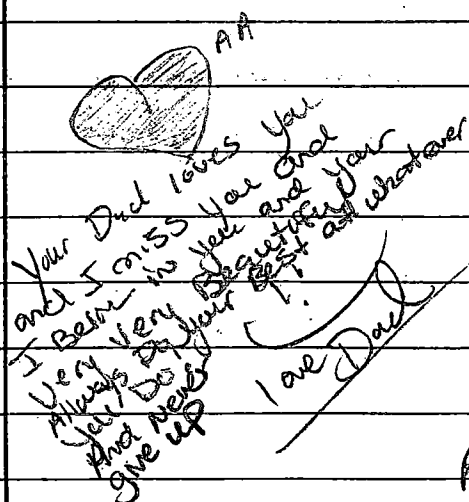 AA
Your Dad loves You
and I miss You and
I Beive in you and your
Very Very Beautiful!!
Always Do your Best at whatever
You Do
And Never
give up
love Dad